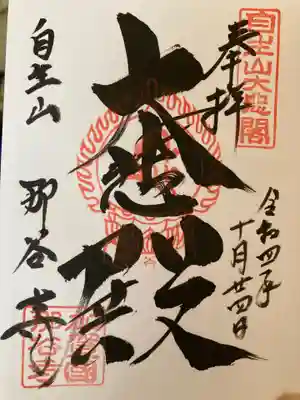 自生山大悲閣
奉拝
令和四年
十月廿四日
大悲殿
自生山
那谷寺